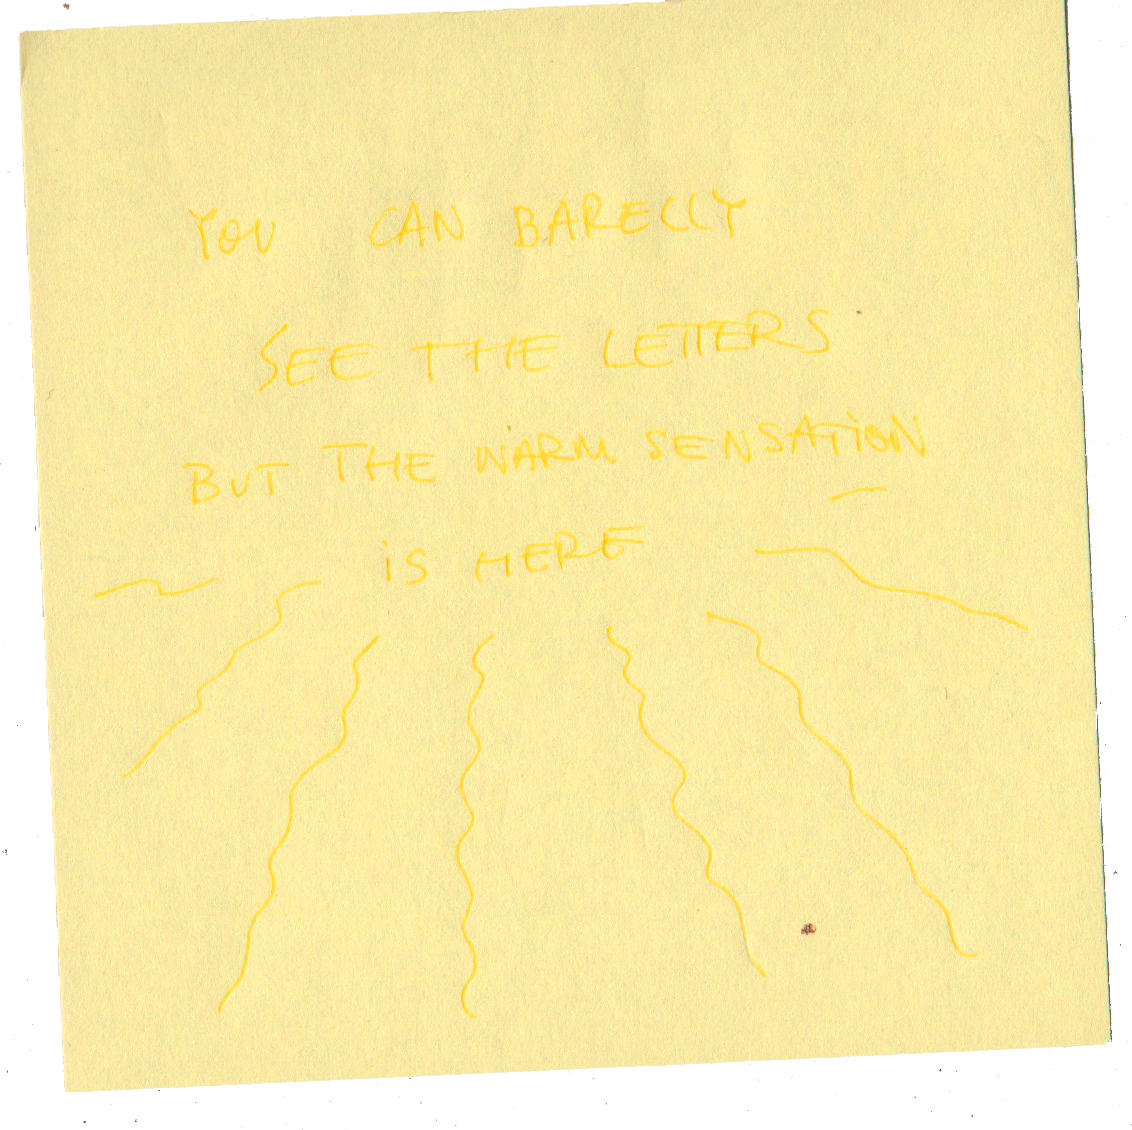 YOU CAN BARELLY
SEE THE LETTERS
BUT THE WARM SENSATION
iS HERE